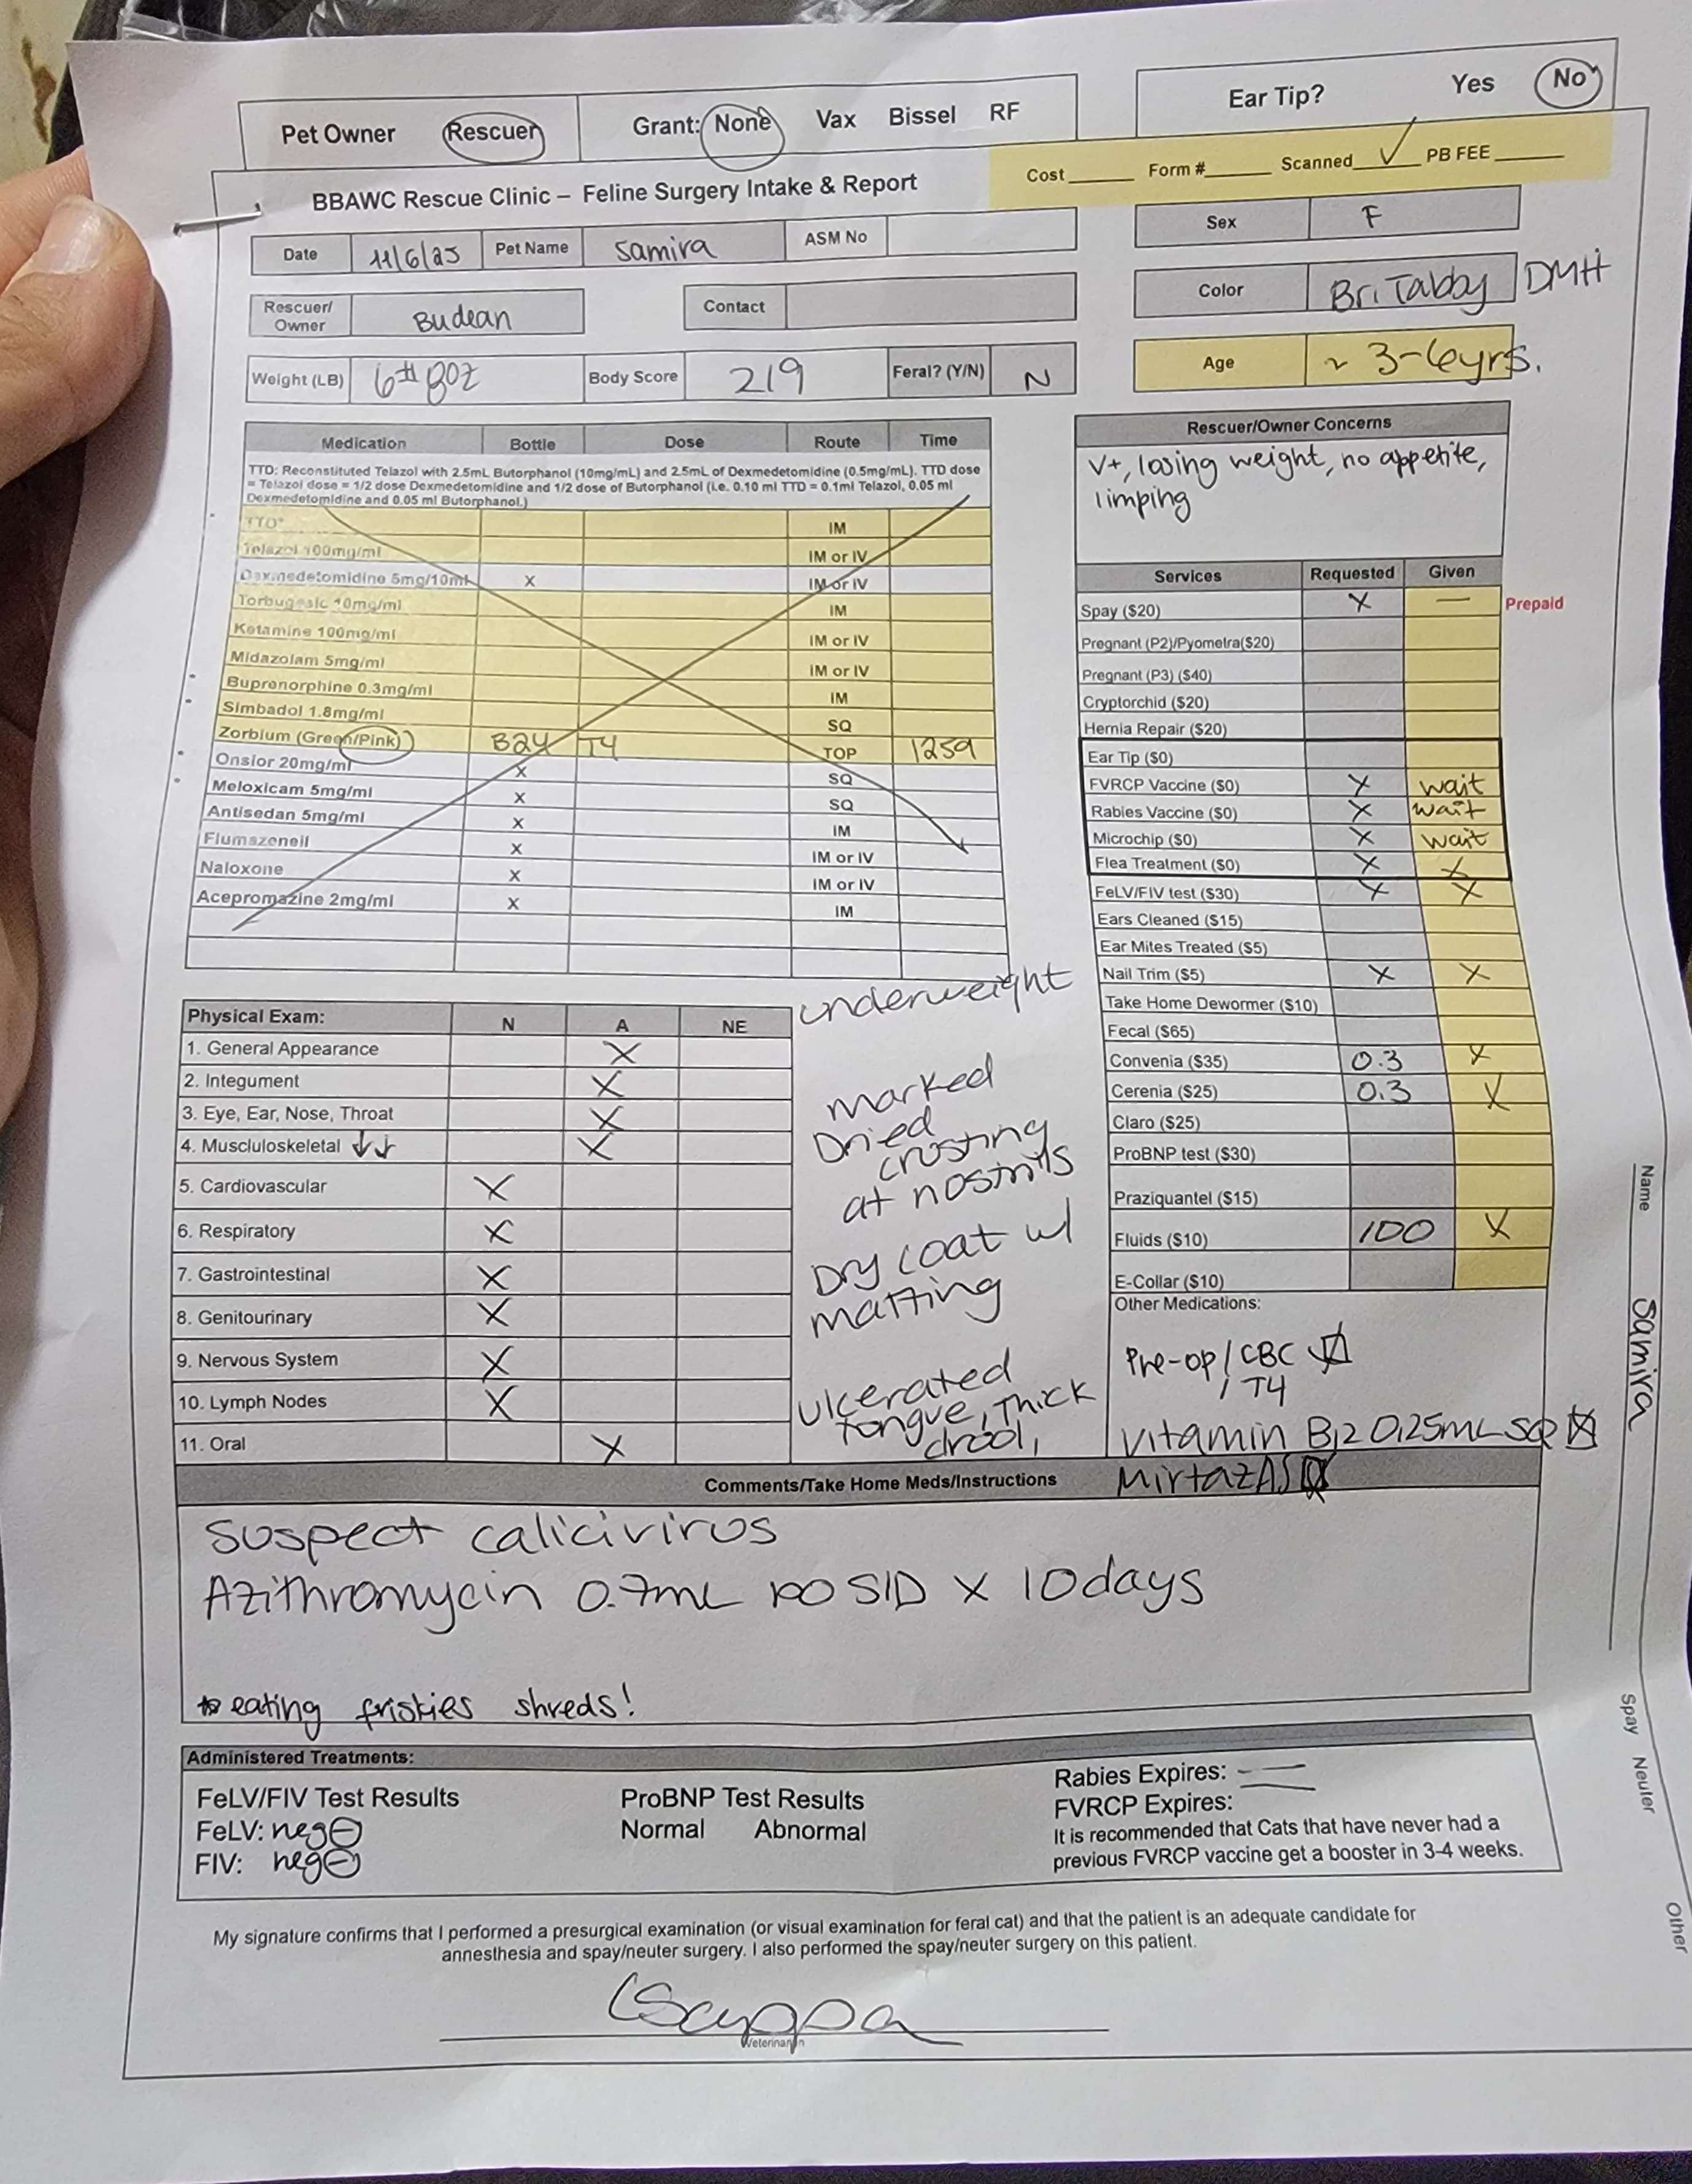 Pet Owner Rescuer Grant: None Vax Bissel RF
Ear Tip? Yes No
Cost Form # Scanned ✓ PB FEE
BBAWC Rescue Clinic – Feline Surgery Intake & Report
Date 11/6/25 Pet Name Samira ASM No
Sex F
Rescuer/Owner Budean Contact
Color Br. Tabby DMH
Weight (LB) 6# 8oz Body Score 2/9 Feral? (Y/N) N
Age ~ 3-6yrs.
Medication Bottle Dose Route Time
TTD: Reconstituted Telazol with 2.5mL Butorphanol (10mg/mL) and 2.5mL of Dexmedetomidine (0.5mg/mL). TTD dose
= Telazol dose = 1/2 dose Dexmedetomidine and 1/2 dose of Butorphanol (i.e. 0.10 ml TTD = 0.1ml Telazol, 0.05 ml
Dexmedetomidine and 0.05 ml Butorphanol.)
TTD* IM
Telazol 100mg/ml IM or IV
Dexmedetomidine 5mg/10ml x IM or IV
Torbugesic 10mg/ml IM
Ketamine 100mg/ml IM or IV
Midazolam 5mg/ml IM or IV
Buprenorphine 0.3mg/ml IM
Simbadol 1.8mg/ml SQ
Zorbium (Green/Pink) B24 T4 TOP 1259
Onsior 20mg/ml x SQ
Meloxicam 5mg/ml x SQ
Antisedan 5mg/ml x IM
Flumazeneil x IM or IV
Naloxone x IM or IV
Acepromazine 2mg/ml x IM
Rescuer/Owner Concerns
V+, losing weight, no appetite,
limping
Services Requested Given
Spay ($20) X — Prepaid
Pregnant (P2)/Pyometra($20)
Pregnant (P3) ($40)
Cryptorchid ($20)
Hernia Repair ($20)
Ear Tip ($0)
FVRCP Vaccine ($0) X wait
Rabies Vaccine ($0) X wait
Microchip ($0) X wait
Flea Treatment ($0) X X
FeLV/FIV test ($30) X X
Ears Cleaned ($15)
Ear Mites Treated ($5)
Nail Trim ($5) X X
Take Home Dewormer ($10)
Fecal ($65)
Convenia ($35) 0.3 X
Cerenia ($25) 0.3 X
Claro ($25)
ProBNP test ($30)
Praziquantel ($15)
Fluids ($10) 100 X
E-Collar ($10)
Other Medications:
Pre-op / CBC
/ T4
Vitamin B12 0.25mL SQ
Mirtaz AS
Physical Exam: N A NE
1. General Appearance X
2. Integument X
3. Eye, Ear, Nose, Throat X
4. Muscluloskeletal ↓↓ X
5. Cardiovascular X
6. Respiratory X
7. Gastrointestinal X
8. Genitourinary X
9. Nervous System X
10. Lymph Nodes X
11. Oral X
underweight
marked
Dried
crusting
at nostrils
Dry coat w/
matting
ulcerated
tongue, thick
drool,
Comments/Take Home Meds/Instructions
Suspect calicivirus
Azithromycin 0.7mL PO SID x 10 days
* eating friskies shreds!
Administered Treatments:
FeLV/FIV Test Results
FeLV: neg ⊖
FIV: neg ⊖
ProBNP Test Results
Normal Abnormal
Rabies Expires: —
FVRCP Expires: —
It is recommended that Cats that have never had a
previous FVRCP vaccine get a booster in 3-4 weeks.
My signature confirms that I performed a presurgical examination (or visual examination for feral cat) and that the patient is an adequate candidate for
annesthesia and spay/neuter surgery. I also performed the spay/neuter surgery on this patient.
Veterinarian
Name Samira
Spay Neuter
Other